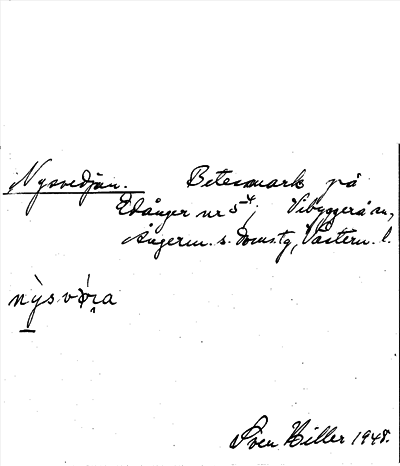 Nysvedjan. Betesmark på
Edånger nr 5⁴; Vibyggerå sn,
Ångerm. s. domstg, Västern. l.
nỳsvǿɹ̣a
Sven Hiller 1948.